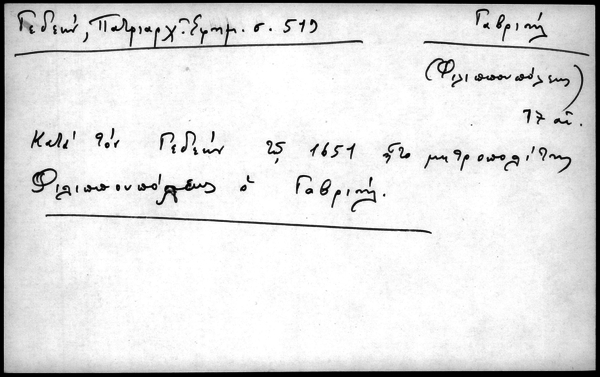 Γεδεών, Πατριαρχ. Ἐφημ. σ. 519
Γαβριήλ
(Φιλιππουπόλεως)
17 αἰ.
Κατά τόν Γεδεών τῷ 1651 ἦτο μητροπολίτης
Φιλιππουπόλεως ὁ Γαβριήλ.